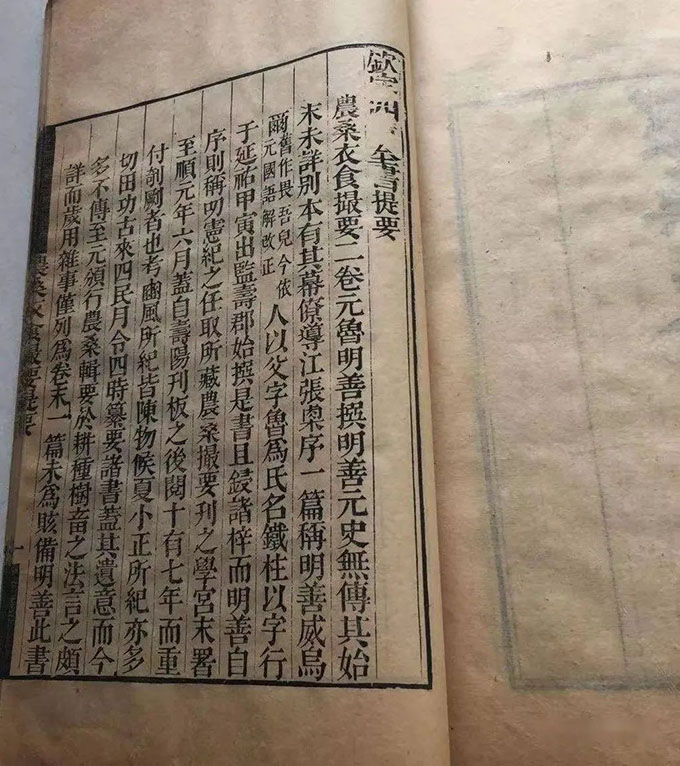 欽定四全書提要
農桑衣食撮要二卷元魯明善撰明善元史無傳其始
末未詳別本有其幕僚導江張㮚序一篇稱明善威烏
爾舊作畏吾兒今依元國語解改正人以父字魯爲氏名鐵柱以字行
于延祐甲寅出監壽郡始撰是書且鋟諸梓而明善自
序則稱叨憲紀之任取所藏農桑撮要刊之學宮末署
至順元年六月蓋自壽陽刊板之後閱十有七年而重
付剞劂者也考豳風所紀皆陳物候夏小正所紀亦多
切田功古來四民月令四時纂要諸書蓋其遺意而今
多不傳至元頒行農桑輯要於耕種樹畜之法言之頗
詳而歲用雜事僅列爲卷末一篇未爲賅備明善此書
農桑衣食撮要提要 一